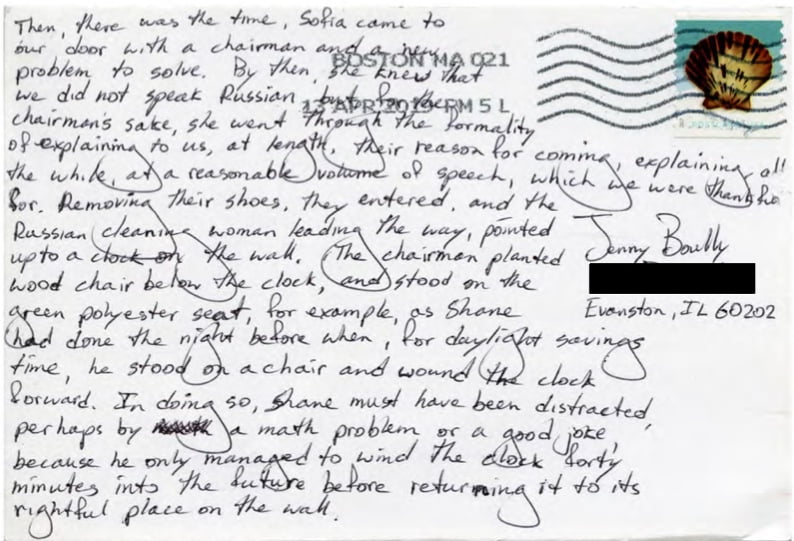 Then, there was the time, Sofia came to
our door with a chairman and a new
problem to solve. By then, she knew that
we did not speak Russian, but for the
chairman's sake, she went through the formality
of explaining to us, at length, their reason for coming, explaining, all
the while, at a reasonable volume of speech, which we were thankful
for. Removing their shoes, they entered, and the
Russian cleaning woman leading the way, pointed
up to a clock on the wall. The chairman planted
wood chair below the clock, and stood on the
green polyester seat, for example, as Shane
had done the night before when, for daylight savings
time, he stood on a chair and wound the clock
forward. In doing so, Shane must have been distracted,
perhaps by a math problem or a good joke,
because he only managed to wind the clock forty
minutes into the future before returning it to its
rightful place on the wall.
BOSTON MA 021
13 APR 2019 PM 5 L
Jenny Boully
Evanston, IL 60202